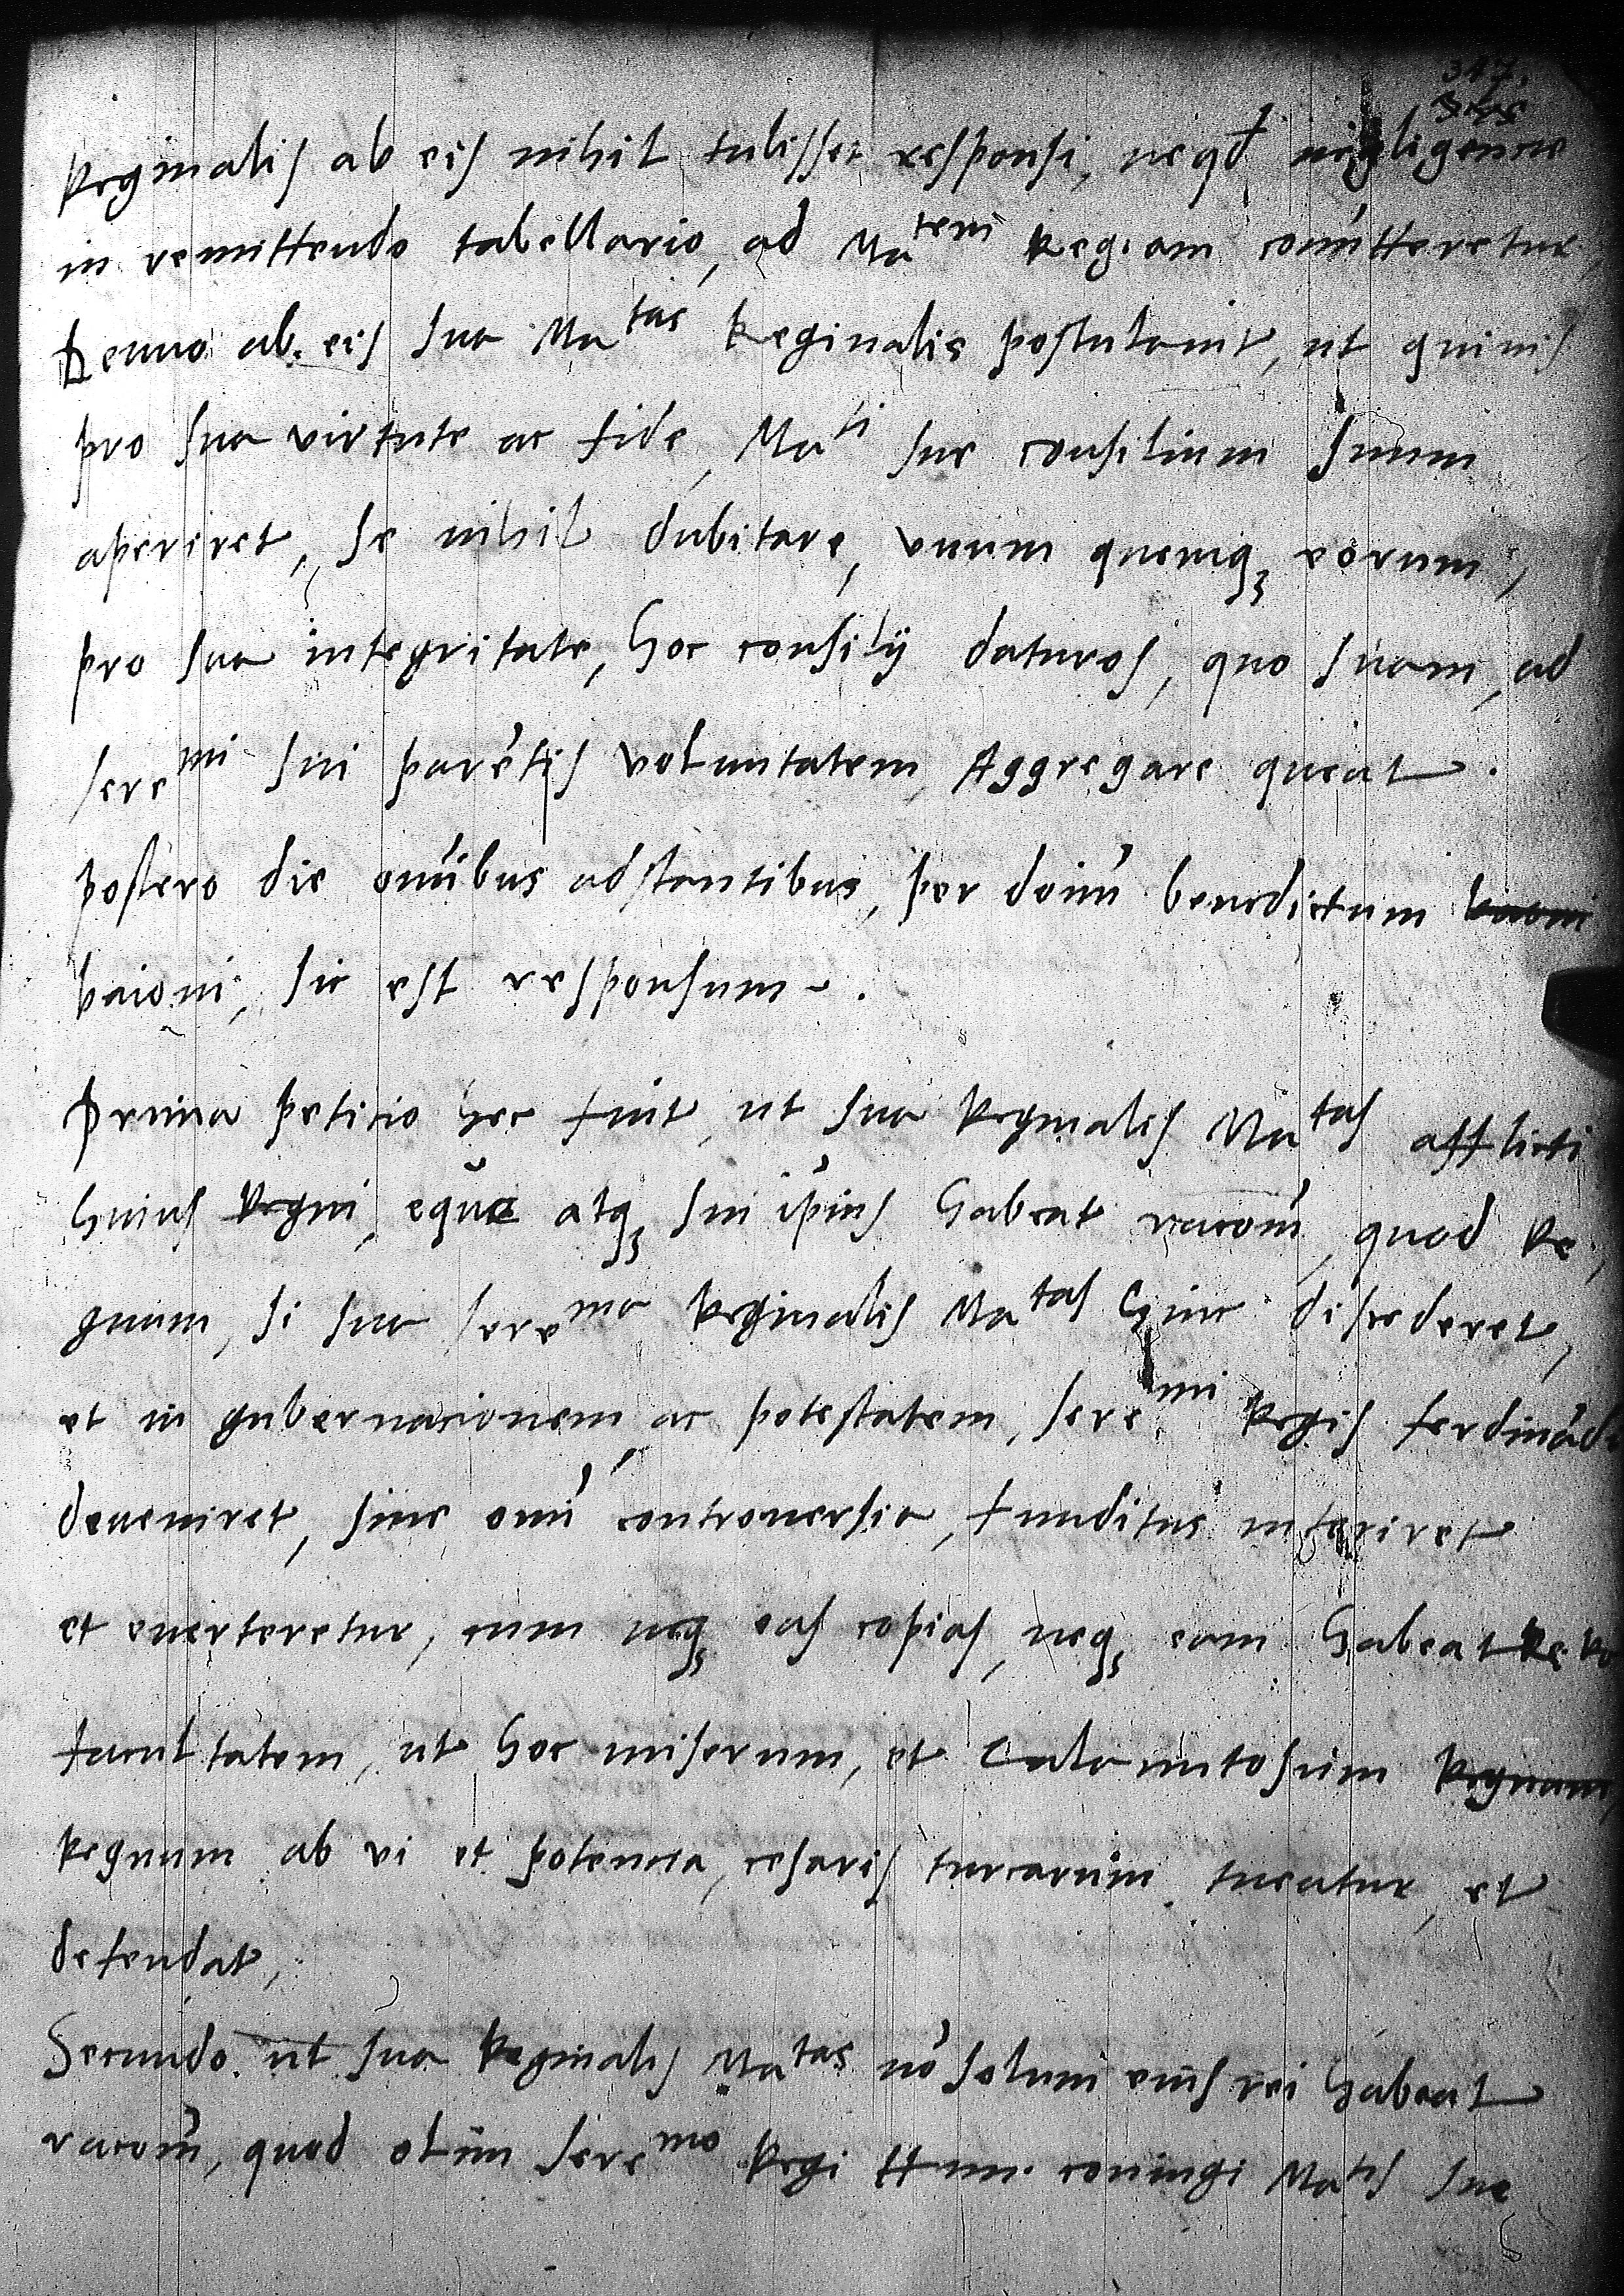 347.
Reginalis ab eis nihil tulisset responsi, neqd negligencie
in remittendo tabellario, ad Matem Regiam comitteretur,
denuo ab eis sua Matas Reginalis postulauit, ut quiuis
pro sua virtute ac fide, Mati sue consilium suum
aperiret, se nihil dubitare, vnum quemqȝ eorum,
pro sua integritate, hoc consilÿ daturos, quo suam, ad
seremi sui parētis voluntatem Aggregare queat.
postero die omībus adstantibus, per doīm benedictum
baioni, sic est responsum.
prima peticio hec fuit, ut sua Reginalis Matas afflicti
huius Regni, eque atqȝ sui ipīus habeat racōm, quod Re,
gnum, si sua serema Reginalis Matas hinc discederet,
et in gubernacionem ac potestatem, seremi Regis ferdinādi
deueniret, sine omī controuersia, funditus interiret
et euerteretur, cum neqȝ eas copias, neqȝ eam habeat
facultatem, ut hoc miserum, et calamitosum Regnum,
Regnum ab vi et potencia, cesaris turcarum tueatur, et
defendat,
Secundo ut sua Reginalis Matas nō solum eius rei habeat
racōm, quod olim seremo Regi coniugi Matis sue